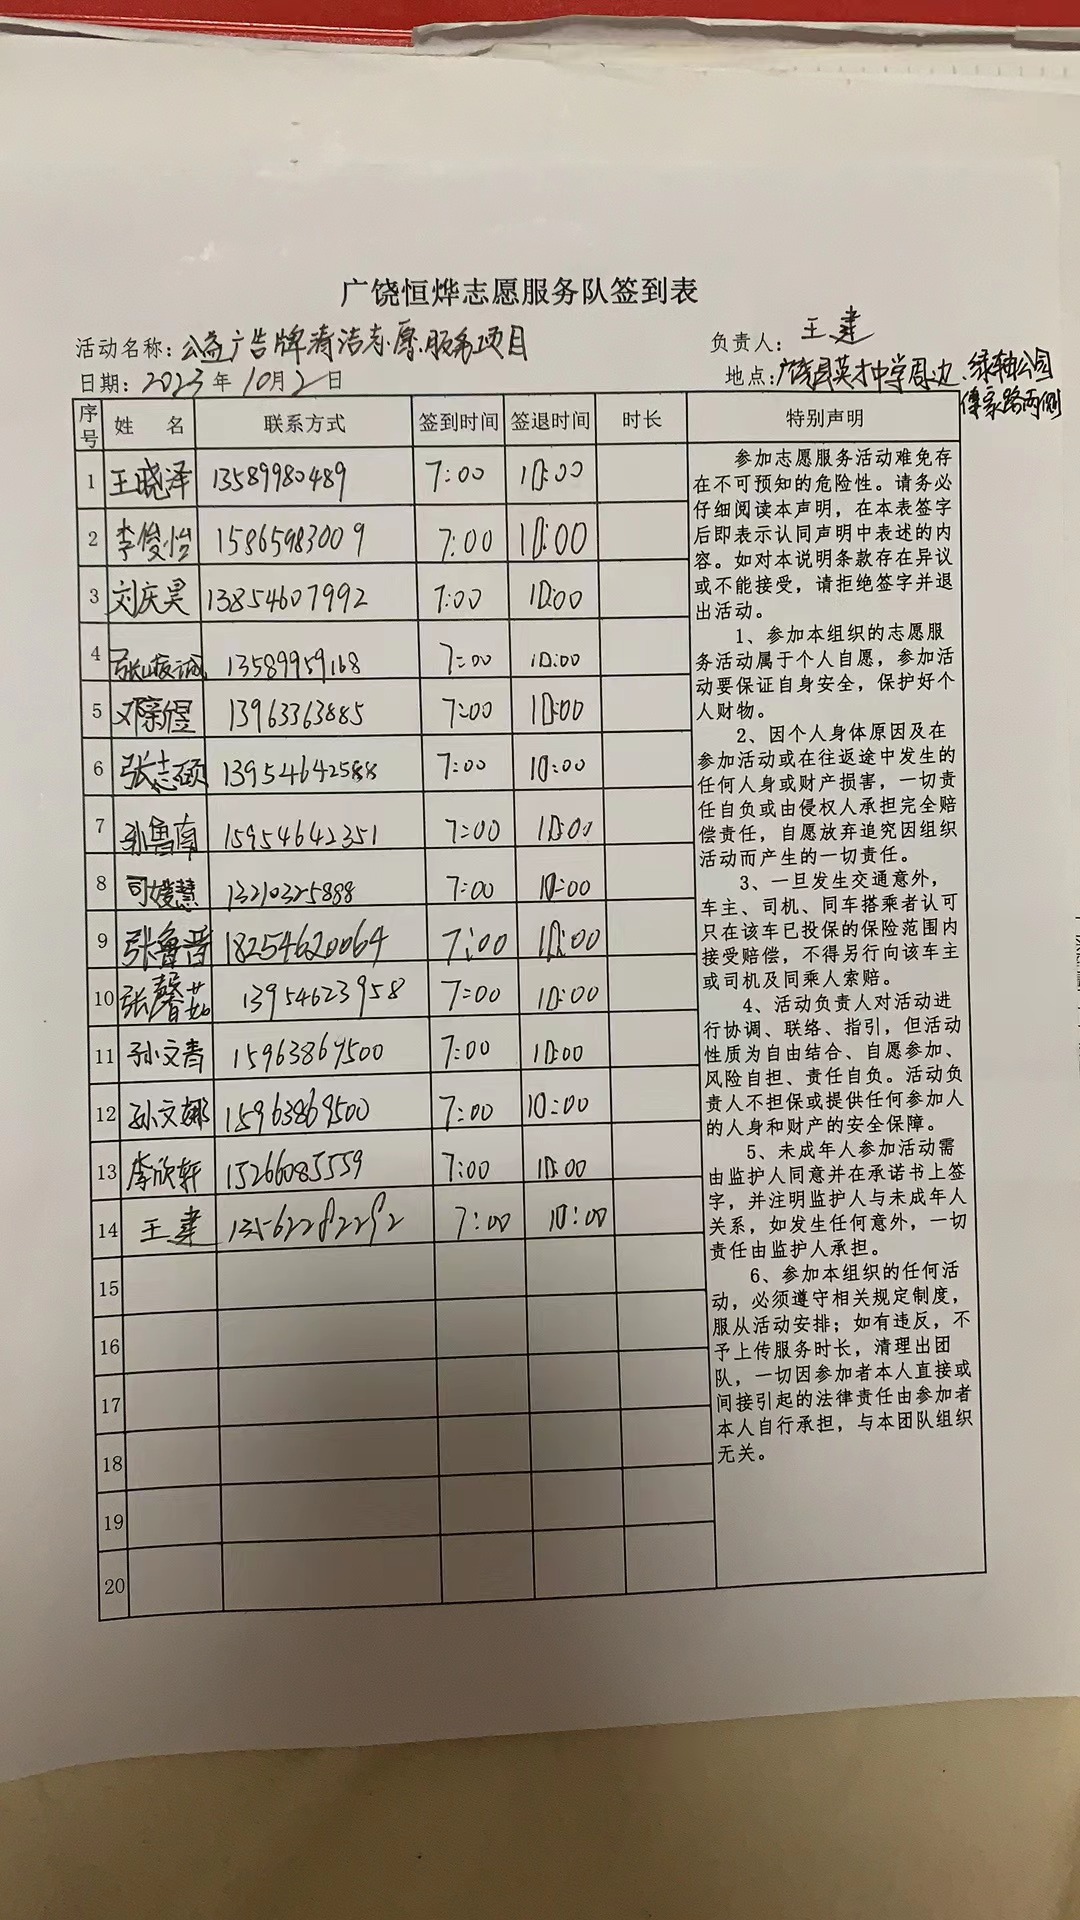 广饶恒烨志愿服务队签到表
活动名称：公益广告牌清洁志愿服务项目 负责人：王建
日期：2023年10月2日 地点：广饶县英才中学周边、绿轴公园
傅家路两侧
序号 姓 名 联系方式 签到时间 签退时间 时长 特别声明
1 王晓泽 13589980489 7:00 10:00
2 李俊怡 15865983009 7:00 10:00
3 刘庆昊 13854607992 7:00 10:00
4 13589959168 7:00 10:00
5 邓 13963363885 7:00 10:00
6 张志硕 13954642588 7:00 10:00
7 孙鲁南 15954642351 7:00 10:00
8 司媛慧 13210325888 7:00 10:00
9 张鲁晋 18254620064 7:00 10:00
10 张馨 13954623958 7:00 10:00
11 孙文青 15963869500 7:00 10:00
12 孙文娜 15963869500 7:00 10:00
13 李欣轩 15266085559 7:00 10:00
14 王建 13562282292 7:00 10:00
15
16
17
18
19
20
参加志愿服务活动难免存
在不可预知的危险性。请务必
仔细阅读本声明，在本表签字
后即表示认同声明中表述的内
容。如对本说明条款存在异议
或不能接受，请拒绝签字并退
出活动。
1、参加本组织的志愿服
务活动属于个人自愿，参加活
动要保证自身安全，保护好个
人财物。
2、因个人身体原因及在
参加活动或在往返途中发生的
任何人身或财产损害，一切责
任自负或由侵权人承担完全赔
偿责任，自愿放弃追究因组织
活动而产生的一切责任。
3、一旦发生交通意外，
车主、司机、同车搭乘者认可
只在该车已投保的保险范围内
接受赔偿，不得另行向该车主
或司机及同乘人索赔。
4、活动负责人对活动进
行协调、联络、指引，但活动
性质为自由结合、自愿参加、
风险自担、责任自负。活动负
责人不担保或提供任何参加人
的人身和财产的安全保障。
5、未成年人参加活动需
由监护人同意并在承诺书上签
字，并注明监护人与未成年人
关系，如发生任何意外，一切
责任由监护人承担。
6、参加本组织的任何活
动，必须遵守相关规定制度，
服从活动安排；如有违反，不
予上传服务时长，清理出团
队，一切因参加者本人直接或
间接引起的法律责任由参加者
本人自行承担，与本团队组织
无关。